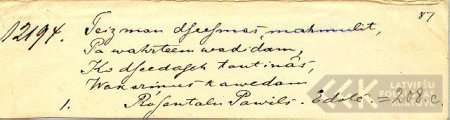 87
12194. Teiz man dseesmas, mahmulit,
Pa wahrteem wadidam,
Ko dseedaschu tautinâs,
Wakarinus kawedam
1. Rosentalu Pawils. Edolē. = 208. c.
LATVIEŠU